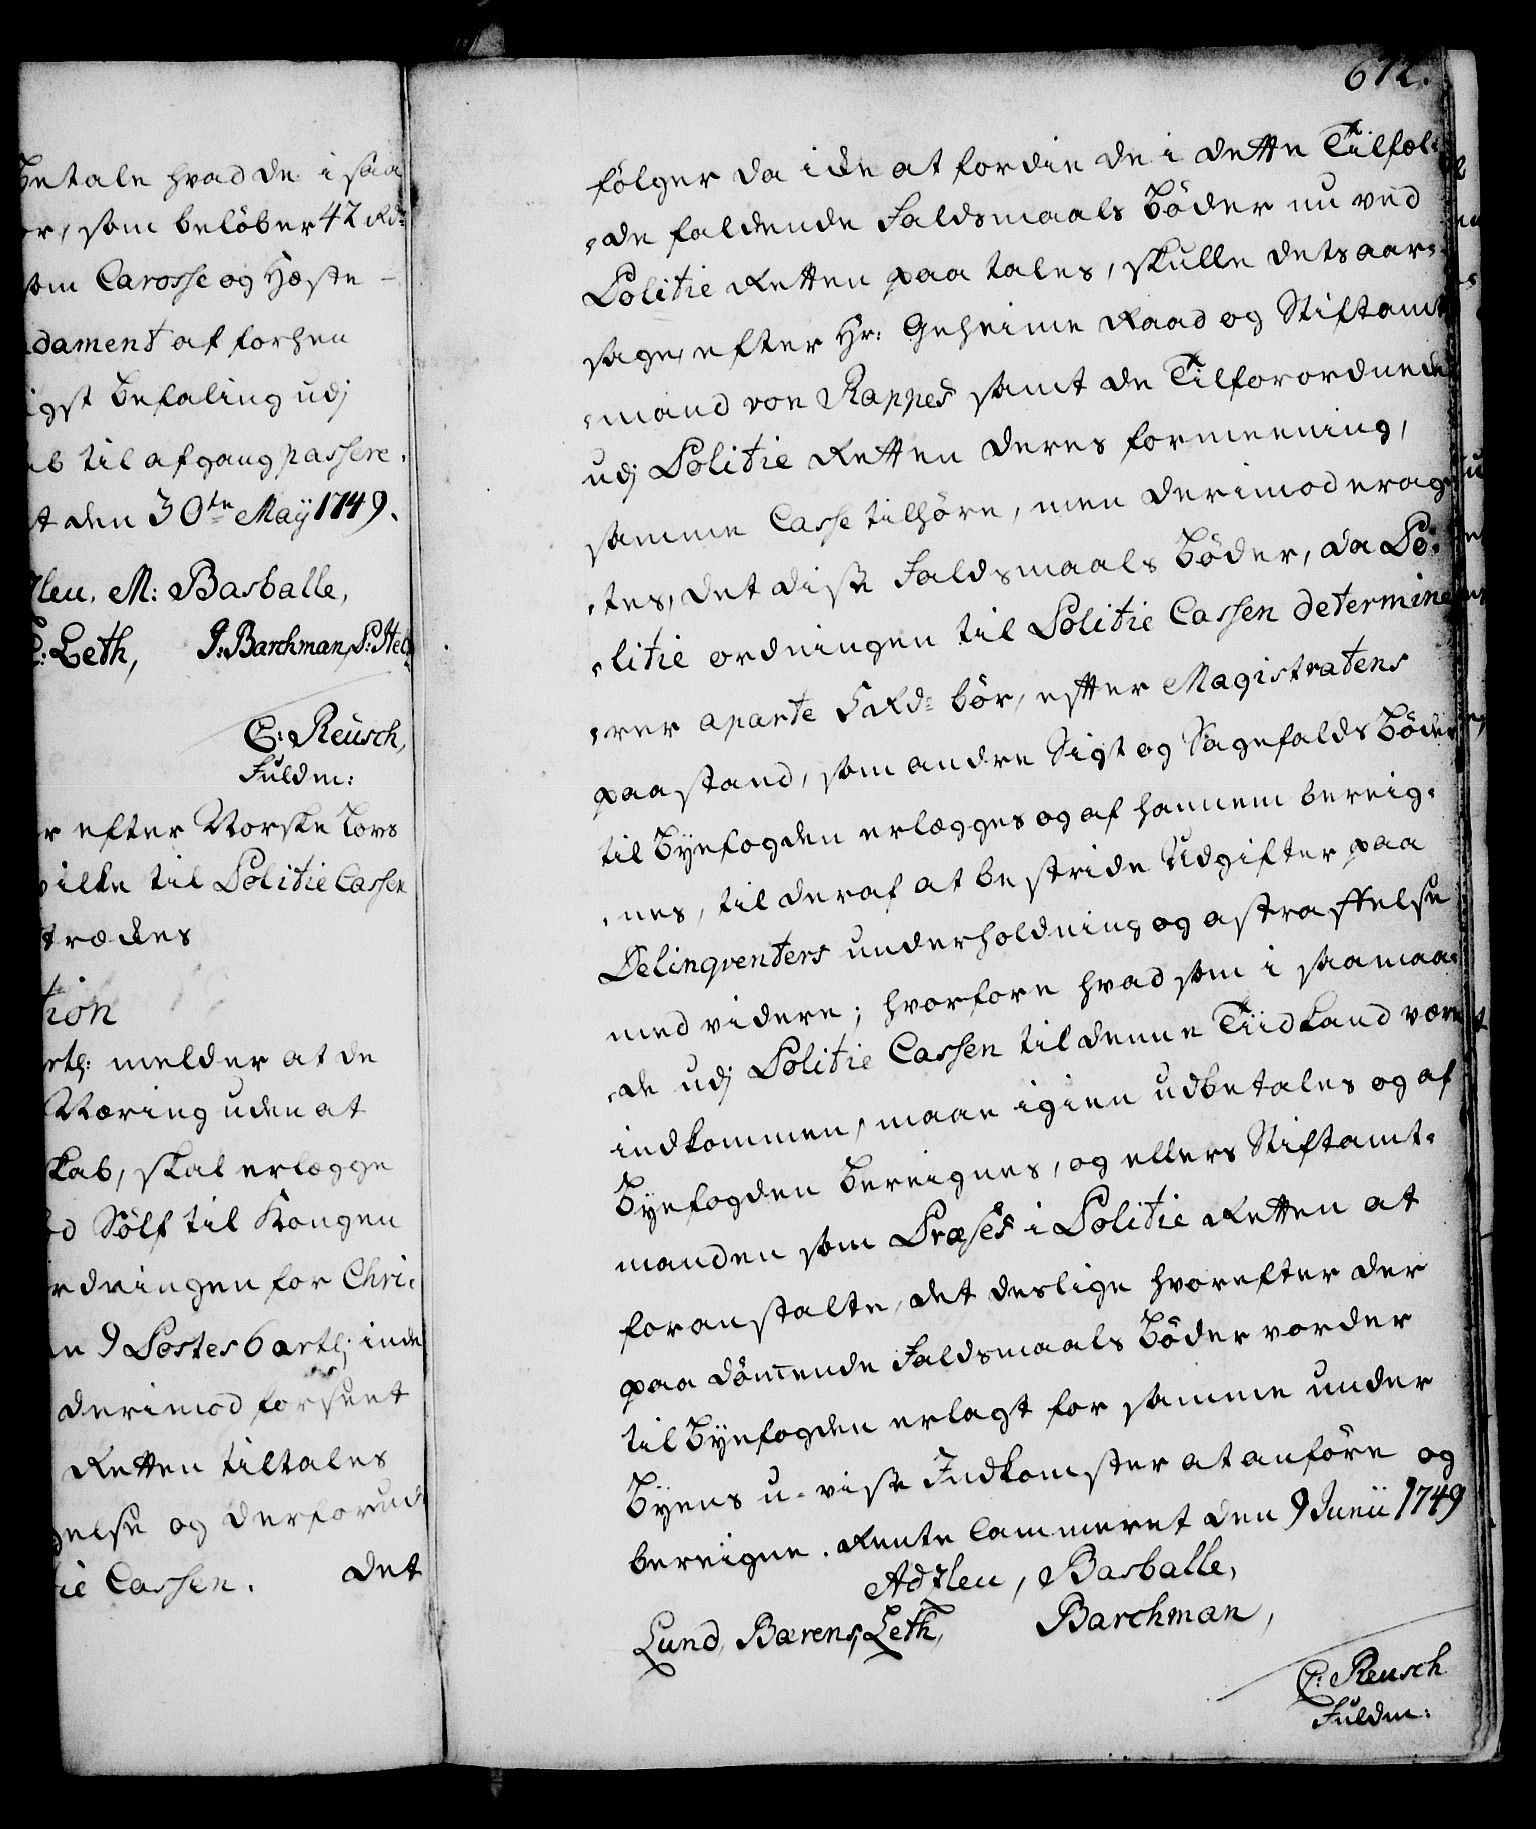 betale hvad de i saa
er, som beløber 42 Rd:
som Carosse og Hæste-
dament af forhen
igst Befaling udj
ab til afgang passere.
t den 30te Maij 1749.
tleu. M: Basballe,
C: Leth, J: Barchman, P: Hel
C: Reusch,
Fuldm:
er efter Norske Lovs
vilke til Politie Cassen
trædes
tion
artl: melder at de
Næring uden at
skab, skal erlægge
od Sölf til Kongen
rdningen for Chri-
en 9 Postes 6 artl: inde
derimod forseet
Retten tiltales
gelse og derforud
tie Cassen. Det
672.
følger da icke at fordie de i dette Tilfæl-
de faldende Faldsmaals Bøder nu ved
Politie Retten paa tales, skulle dets aar-
sage, efter Hr: Geheime Raad og Stiftamt
mand von Rappes samt de Tilforordnede
udj Politie Retten deres formeening,
samme Casse tilhøre, men derimod erag-
tes, det disse Faldsmaals Bøder, da Po-
litie ordningen til Politie Cassen determine
rer aparte 5 Rd: bør, efter Magistratens
paastand, som andre Sigt og Sagefalds Bøder
til Byefogden erlægges og af hannem bereig-
nes, til deraf at bestride Udgifter paa
Delinqventers underholdning og astraffelse
med videre; hvorfore hvad som i saamaa-
de udj Politie Cassen til denne Tiid kand være
indkommen, maae igien udbetales og af
Byefogden Bereignes, og ellers Stiftamt-
manden som Præses i Politie Retten at
foranstalte, det deslige hvorefter der
paa dømmende Faldsmaals Bøder vorder
til Byefogden erlagt for samme under
Byens u-visse Indkomster at anføre og
bereigne. Rente Cammeret den 9 Junii 1749
Adtleu, Basballe,
Lund, Bærens, Leth, Barchman,
C: Reusch
Fuldm: